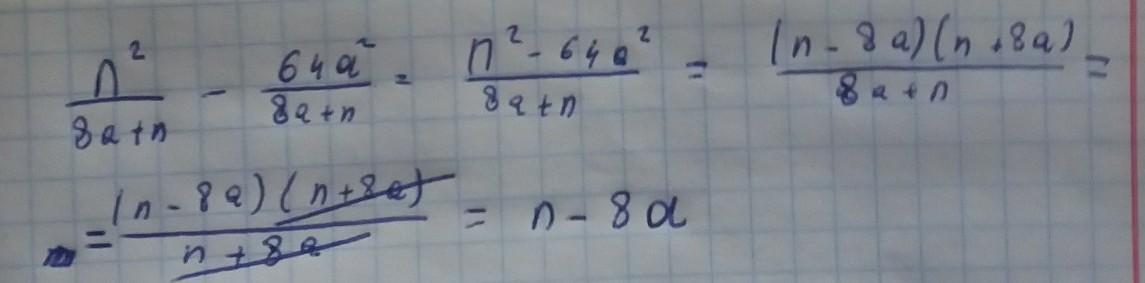 n²/(8a+n) - 64a²/(8a+n) = (n² - 64a²)/(8a+n) = (n - 8a)(n + 8a)/(8a+n) =
= (n - 8a)(n + 8a)/(n + 8a) = n - 8a